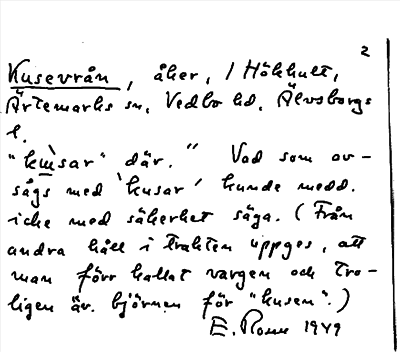 2
Kusevrån, åker, / Hökhult,
Ärtemarks sn, Vedbo hd, Älvsborgs
l.
"kusar" där." Vad som av-
sågs med 'kusar' kunde medd.
icke med säkerhet säga. (Från
andra håll i trakten uppges, att
man förr kallat vargen och tro-
ligen äv. björnen för "kusen".)
E. Rosell 1949